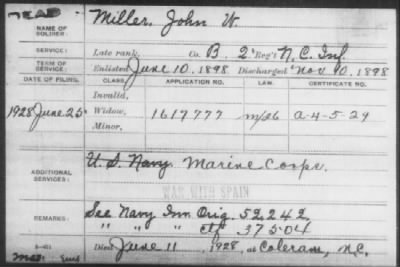 DEAD
NAME OF SOLDIER: Miller, John W.
SERVICE: Late rank, Co. B, 2" Reg't N.C. Inf.
TERM OF SERVICE: Enlisted June 10, 1898 Discharged Nov 10, 1898
DATE OF FILING. CLASS. APPLICATION NO. LAW. CERTIFICATE NO.
Invalid,
1928 June 25 Widow, 1617777 A-4-5-29
Minor,
ADDITIONAL SERVICES: U.S. Navy. Marine Corps.
WAR WITH SPAIN
REMARKS: See Navy Inv. Orig. 52,242,
" " " Ctf. 37504
Died June 11, 1928, at Colerain, N.C.